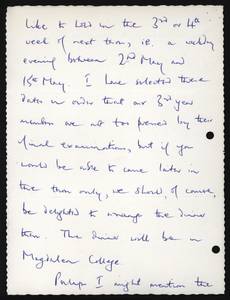 like to hold in the 3rd or 4th
week of next term, i.e. a weekday
evening between 2nd May and
15th May. I have selected these
dates in order that our 3rd year
members are not too pressed by their
final examinations, but if you
would be able to come later in
the term only, we should, of course,
be delighted to arrange the dinner
then. The dinner will be in
Magdalen College.
Perhaps I might mention the